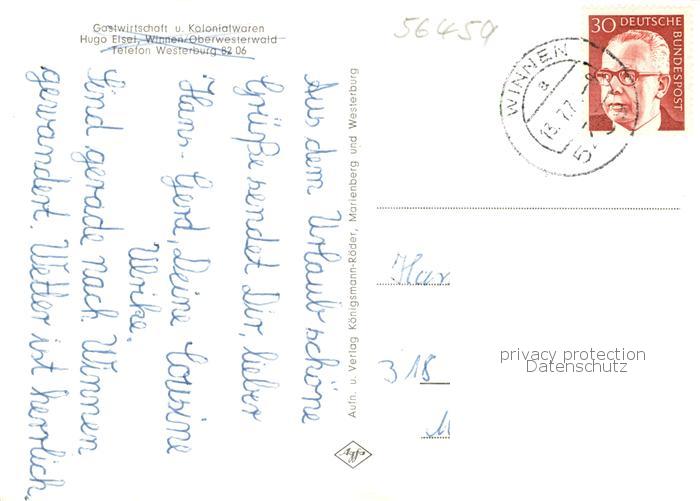 Gastwirtschaft u. Kolonialwaren
Hugo Eisei, Winnen/Oberwesterwald
Telefon Westerburg 82 06
56459
30 DEUTSCHE
BUNDESPOST
WINNEN
a
13.7.7
Aus dem Urlaub schöne
Grüße sendet Dir, lieber
Hans-Gerd, Deine Cousine
Ulrike.
Sind gerade nach Winnen
gewandert. Wetter ist herrlich.
Aufn. u. Verlag Königsmann-Röder, Marienberg und Westerburg
agfa
318
privacy protection
Datenschutz